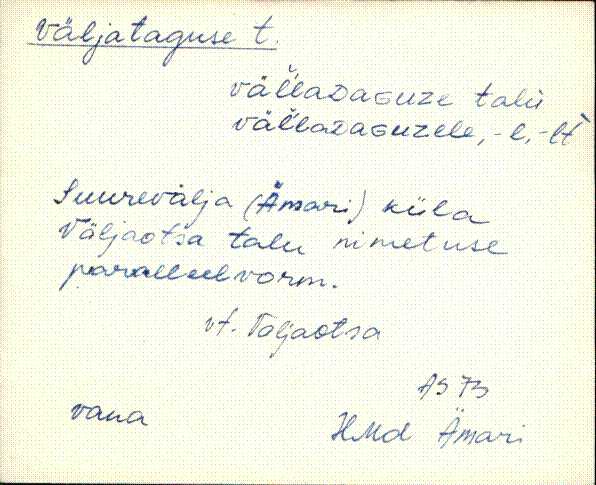 Väljataguse t.
väl̆l̆aᴅaɢuze talù
väl̆l̆aᴅaɢuzele, -l, -lt
Suurevälja (Ämari) küla
Väljaotsa talu nimetuse
paralleelvorm.
vt. Väljaotsa
AS 73
vana
HMd Ämari